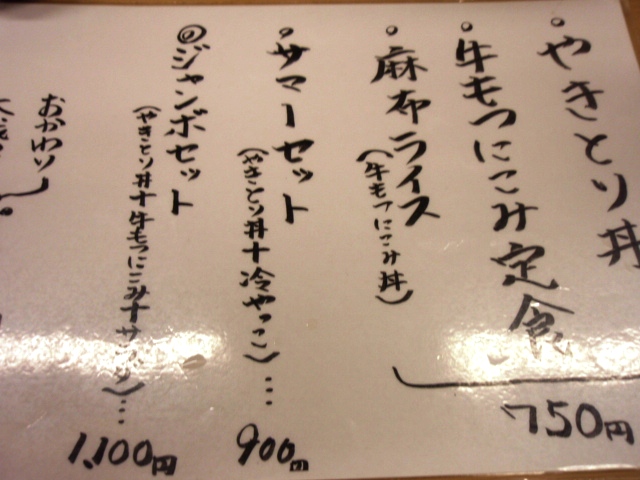 ・やきとり丼
・牛もつにこみ定食
・麻布ライス
(牛もつにこみ丼)
750円
・サマーセット
(やきとり丼+冷やっこ)…
900円
◎ジャンボセット
(やきとり丼+牛もつにこみ+サラダ)…
1,100円
おかわり